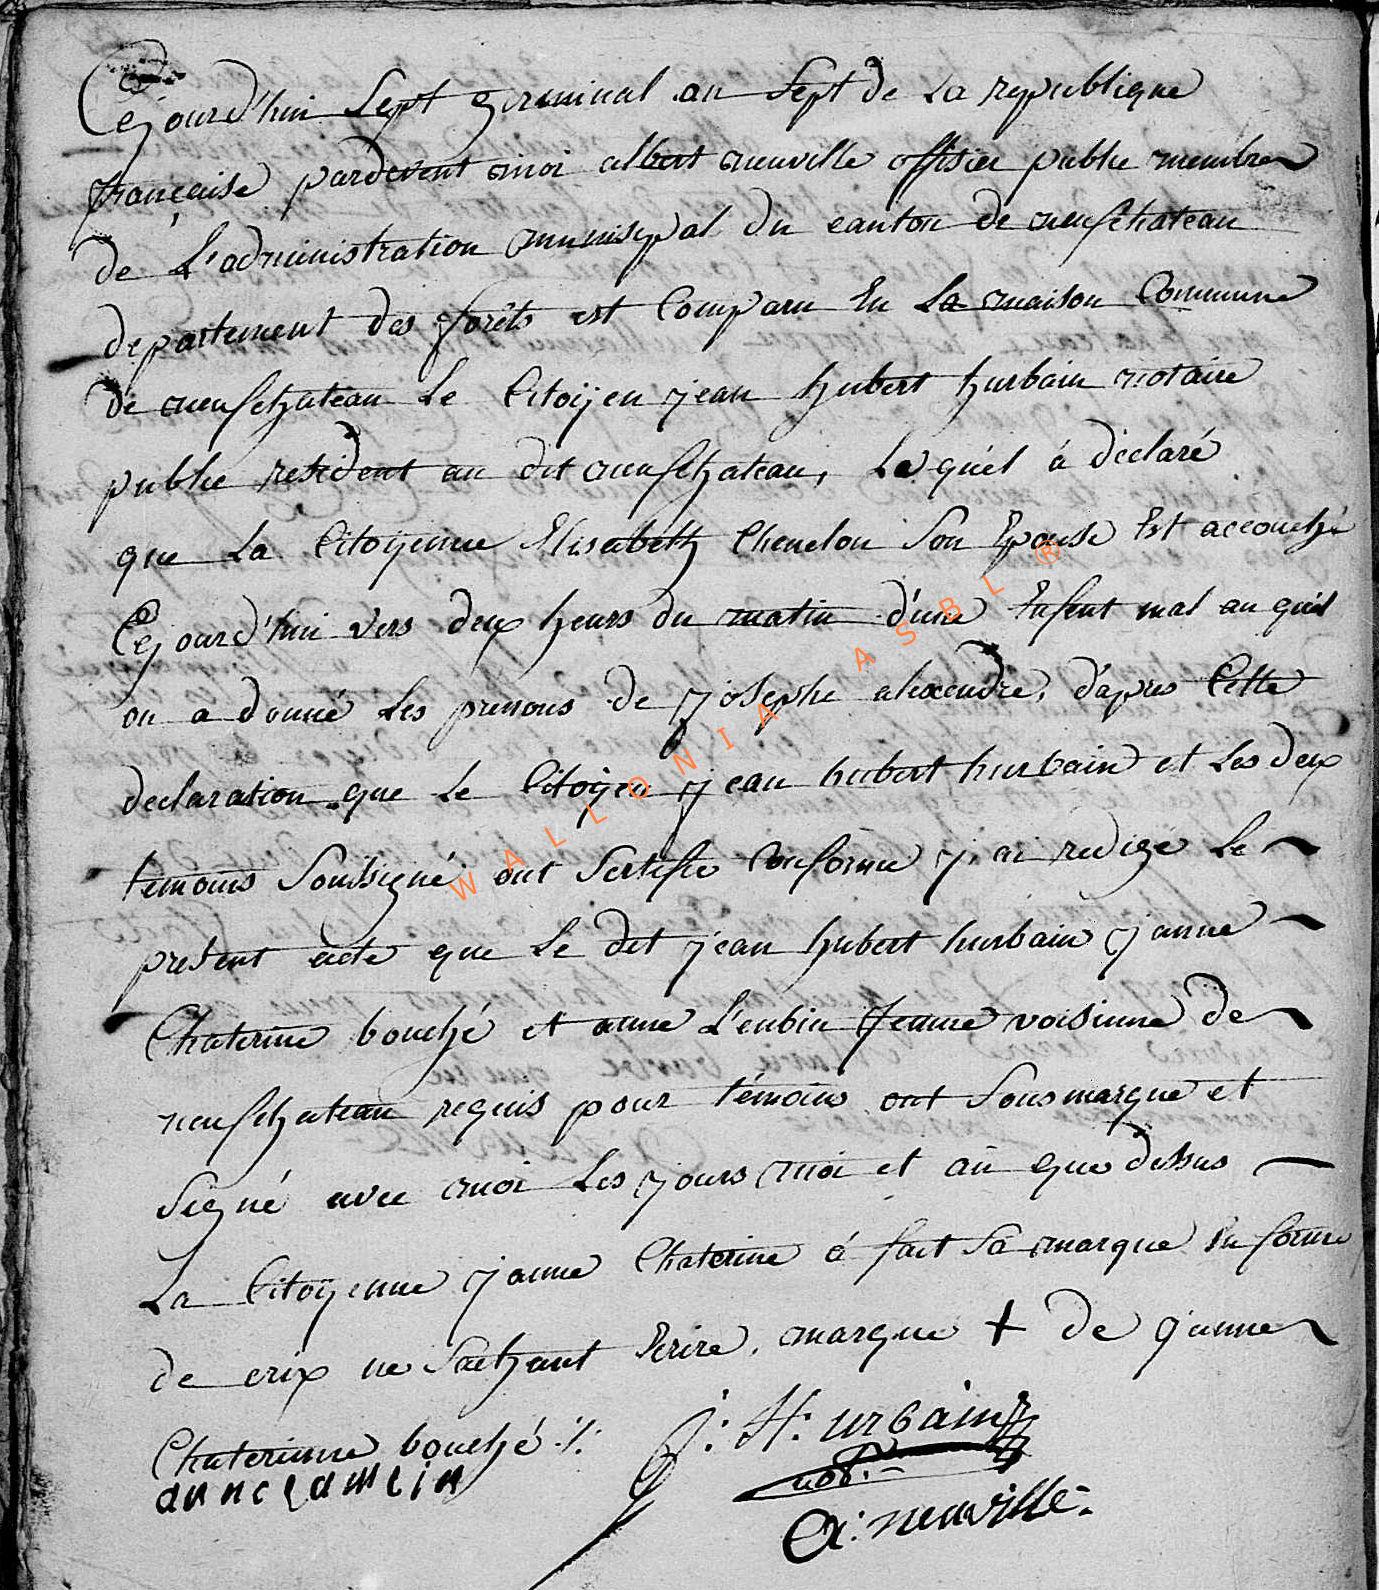 Cejourd'hui Sept germinal an Sept de La republique
française pardevent moi albert neuville offisier publie membre
de L'administration munisipal du canton de neufchateau
departement des forêts est Comparu En La maison Commune
de neufchateau Le Citoÿen jean hubert hurbain notaire
publie resident au dit neufchateau, Le quel á déclaré
que La Citoÿenne Elisabeth Chenelon Son Epouse Est accouché
Cejourd'hui vers deux heurs du matin d'une Enfent mal au quél
on a donné Les prenons de josephe alexendre, d'apres Cette
declaration que Le Citoÿen jean hubert hurbain et Les deux
temoins Soussigné ont Sertifie Conforme j'ai redigé Le
present acte que Le dit jean hubert hurbain janne
Chaterine bouché et anne L'enbin femme voisinne de
neufchateau requis pour témoins ont Sousmarque et
Signé avec moi Les jours moi et an que dessus
La Citoÿenne janne Chaterine á fait Sa marque En forme
de crix ne Sachant Ecrire. marque + de janne
Chaterinne bouché ./.
J: H: urbain
anne lamlin
not.
A: neuville
WALLONIA ASBL ®